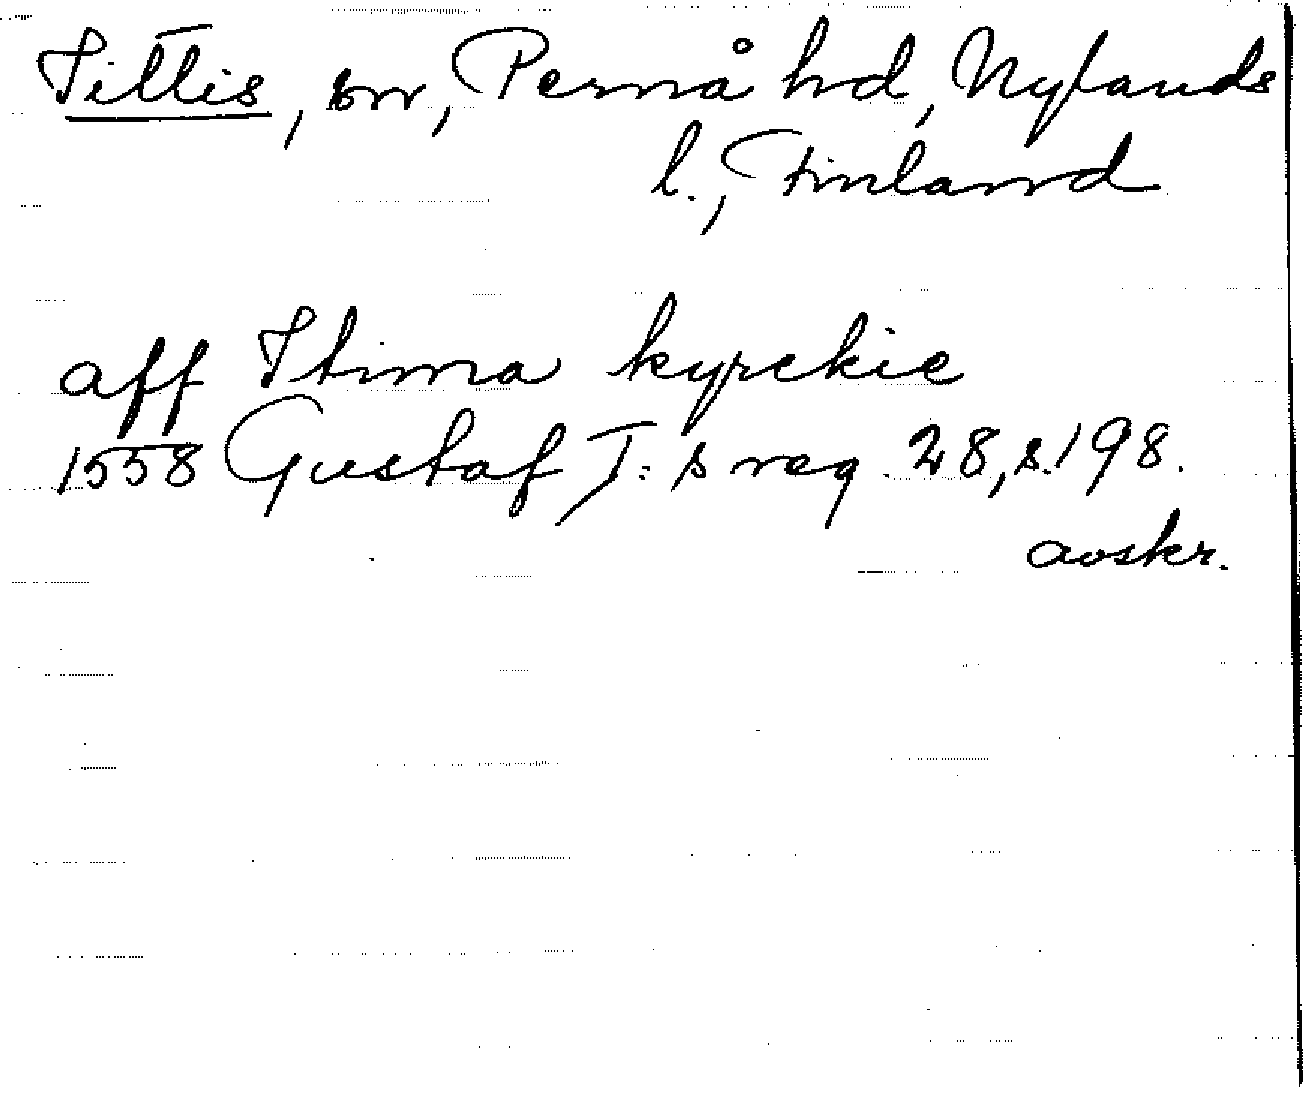 Iittis, sn, Pernå hd, Nylands
l., Finland
aff Itima kyrckie
1558 Gustaf I:s reg. 28, s. 198.
avskr.